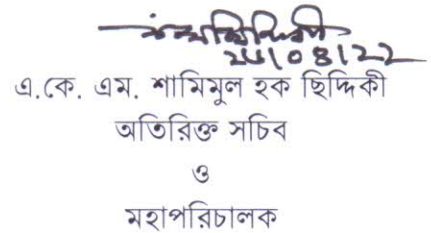 ২৫/০৪/২২
এ.কে. এম. শামিমুল হক ছিদ্দিকী
অতিরিক্ত সচিব
ও
মহাপরিচালক